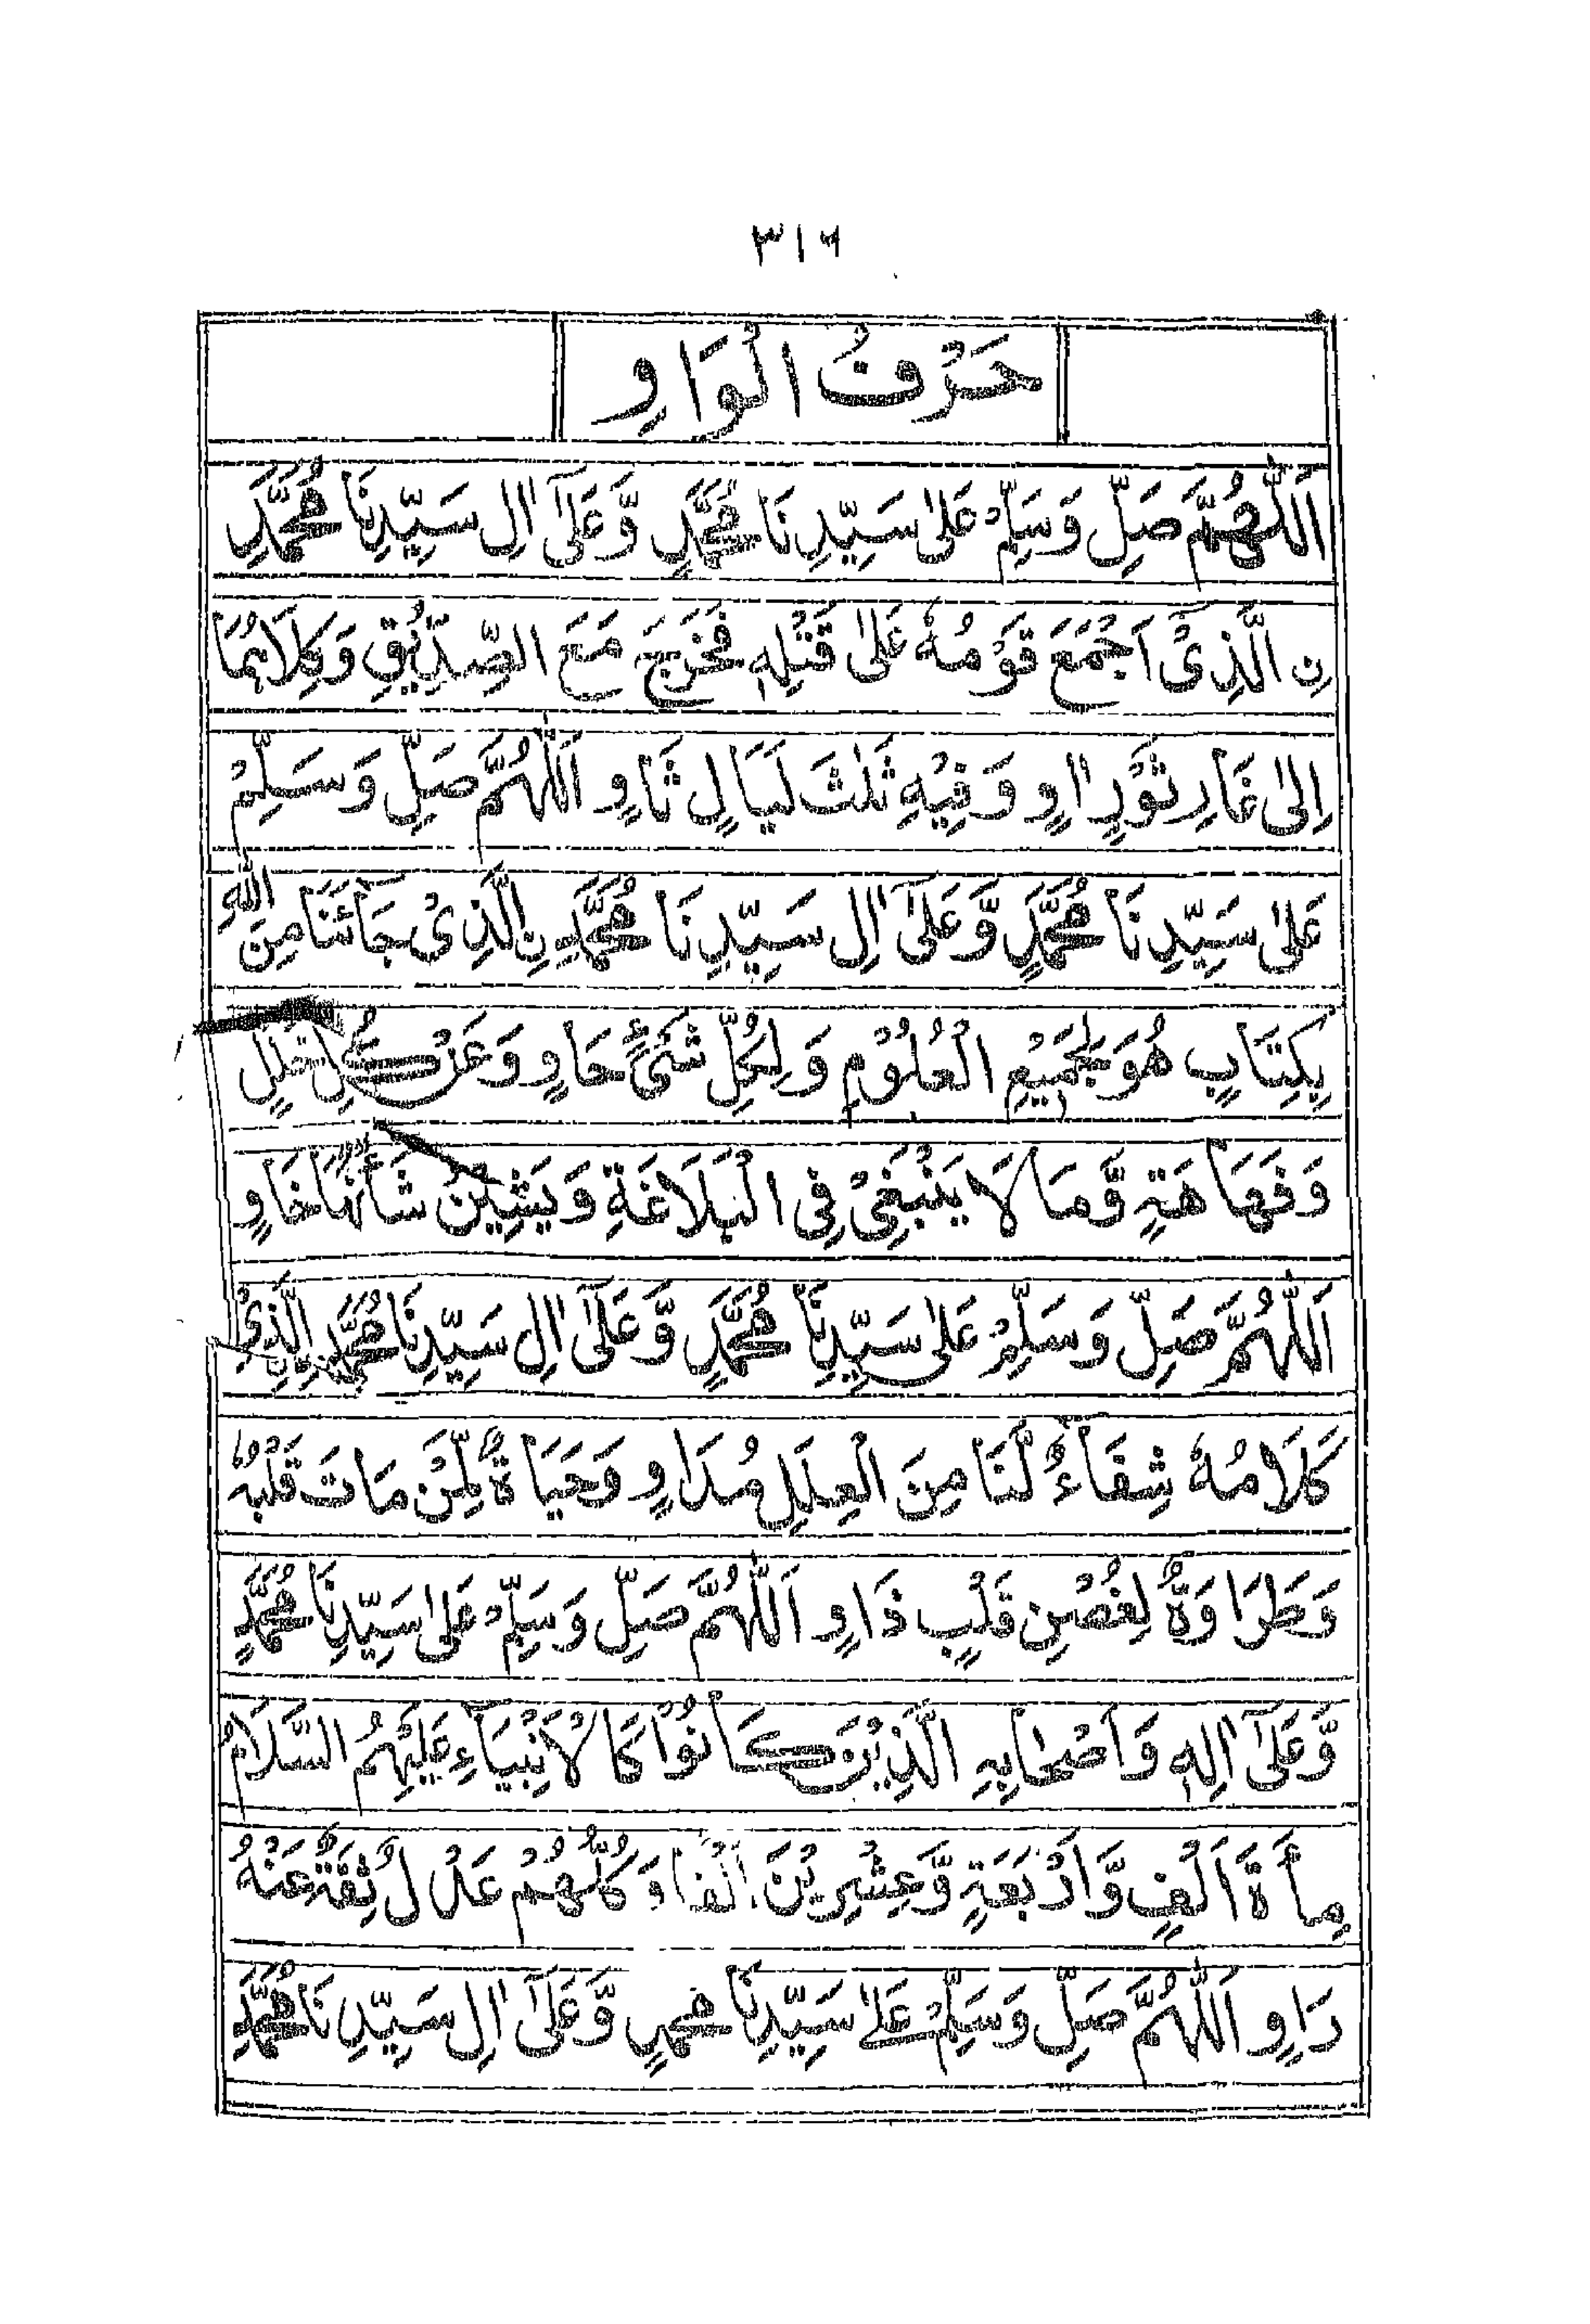 ٣١٦
حَرْفُ الْوَاوِ
اَللّٰهُمَّ صَلِّ وَسَلِّمْ عَلٰى سَيِّدِنَا مُحَمَّدٍ وَّعَلٰٓى اٰلِ سَيِّدِنَا مُحَمَّدِ
نِ الَّذِىْ اَجْمَعَ قَوْمُهٗ عَلٰى قَتْلِهٖ فَخَرَجَ مَعَ الصِّدِّيْقِ وَكِلَاهُمَا
اِلٰى غَارِ ثَوْرٍ اٰوٍ وَفِيْهِ ثَلٰثَ لَيَالٍ ثَاوٍ اَللّٰهُمَّ صَلِّ وَسَلِّمْ
عَلٰى سَيِّدِنَا مُحَمَّدٍ وَّعَلٰٓى اٰلِ سَيِّدِنَا مُحَمَّدِنِ الَّذِىْ جَائَنَا مِنَ اللّٰهِ
بِكِتَابٍ هُوَ بِجَمِيْعِ الْعُلُوْمِ وَلِكُلِّ شَىْءٍ حَاوٍ وَعَنْ كُلِّ خَلَلٍ
وَفَهَاهَةٍ وَّمَا لَا يَنْبَغِىْ فِى الْبَلَاغَةِ وَيَشِيْنُ شَأْنَهَا خَاوٍ
اَللّٰهُمَّ صَلِّ وَسَلِّمْ عَلٰى سَيِّدِنَا مُحَمَّدٍ وَّعَلٰٓى اٰلِ سَيِّدِنَا مُحَمَّدِنِ الَّذِىْ
كَلَامُهٗ شِفَاءٌ لَّنَا مِنَ الْعِلَلِ مُدَاوٍ وَحَيَاةٌ لِّمَنْ مَاتَ قَلْبُهٗ
وَطَرَاوَةٌ لِغُصْنِ قَلْبٍ ذَاوٍ اَللّٰهُمَّ صَلِّ وَسَلِّمْ عَلٰى سَيِّدِنَا مُحَمَّدٍ
وَّعَلٰٓى اٰلِهٖ وَاَصْحَابِهِ الَّذِيْنَ كَانُوْا كَالْاَنْبِيَاءِ عَلَيْهِمُ السَّلَامُ
مِأَةَ اَلْفٍ وَّاَرْبَعَةٍ وَّعِشْرِيْنَ اَلْفًا وَكُلُّهُمْ عَدْلٌ ثِقَةٌ عَنْهُ
رَاوٍ اَللّٰهُمَّ صَلِّ وَسَلِّمْ عَلٰى سَيِّدِنَا مُحَمَّدٍ وَّعَلٰٓى اٰلِ سَيِّدِنَا مُحَمَّدِ